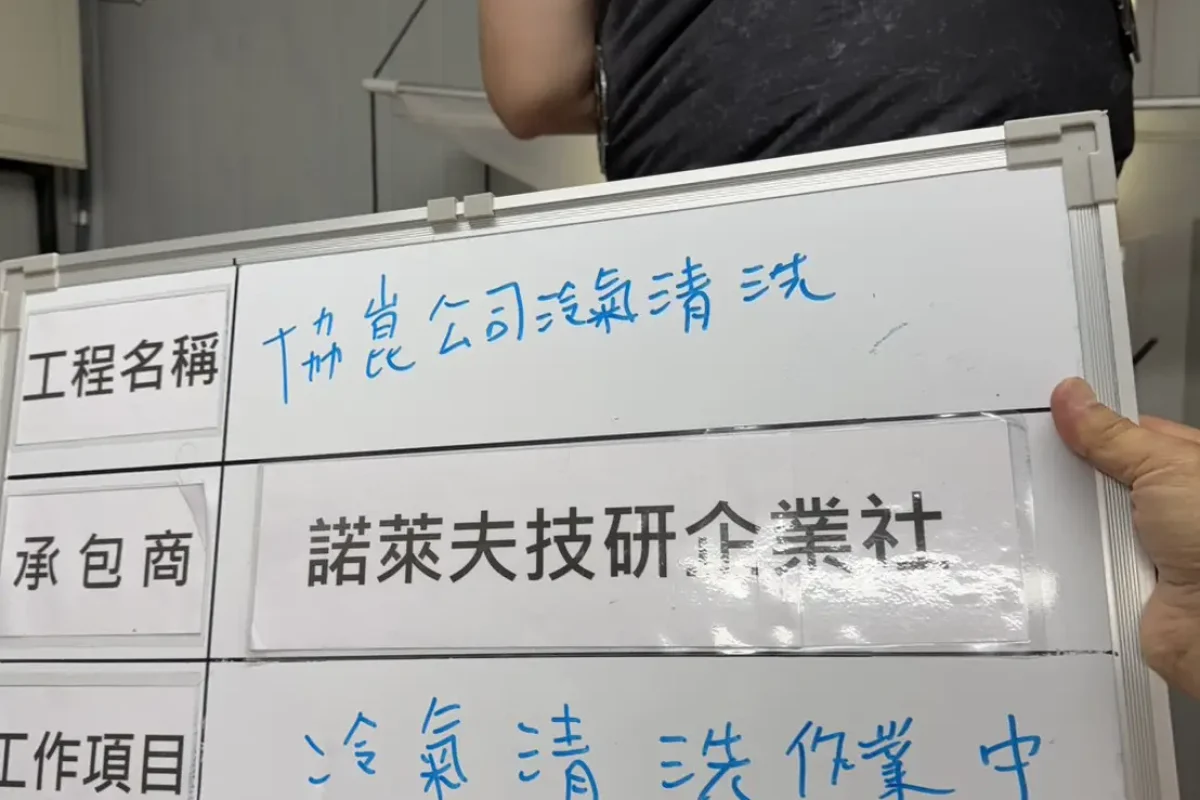 工程名稱 協崑公司冷氣清洗
承包商 諾萊夫技研企業社
工作項目 冷氣清洗作業中